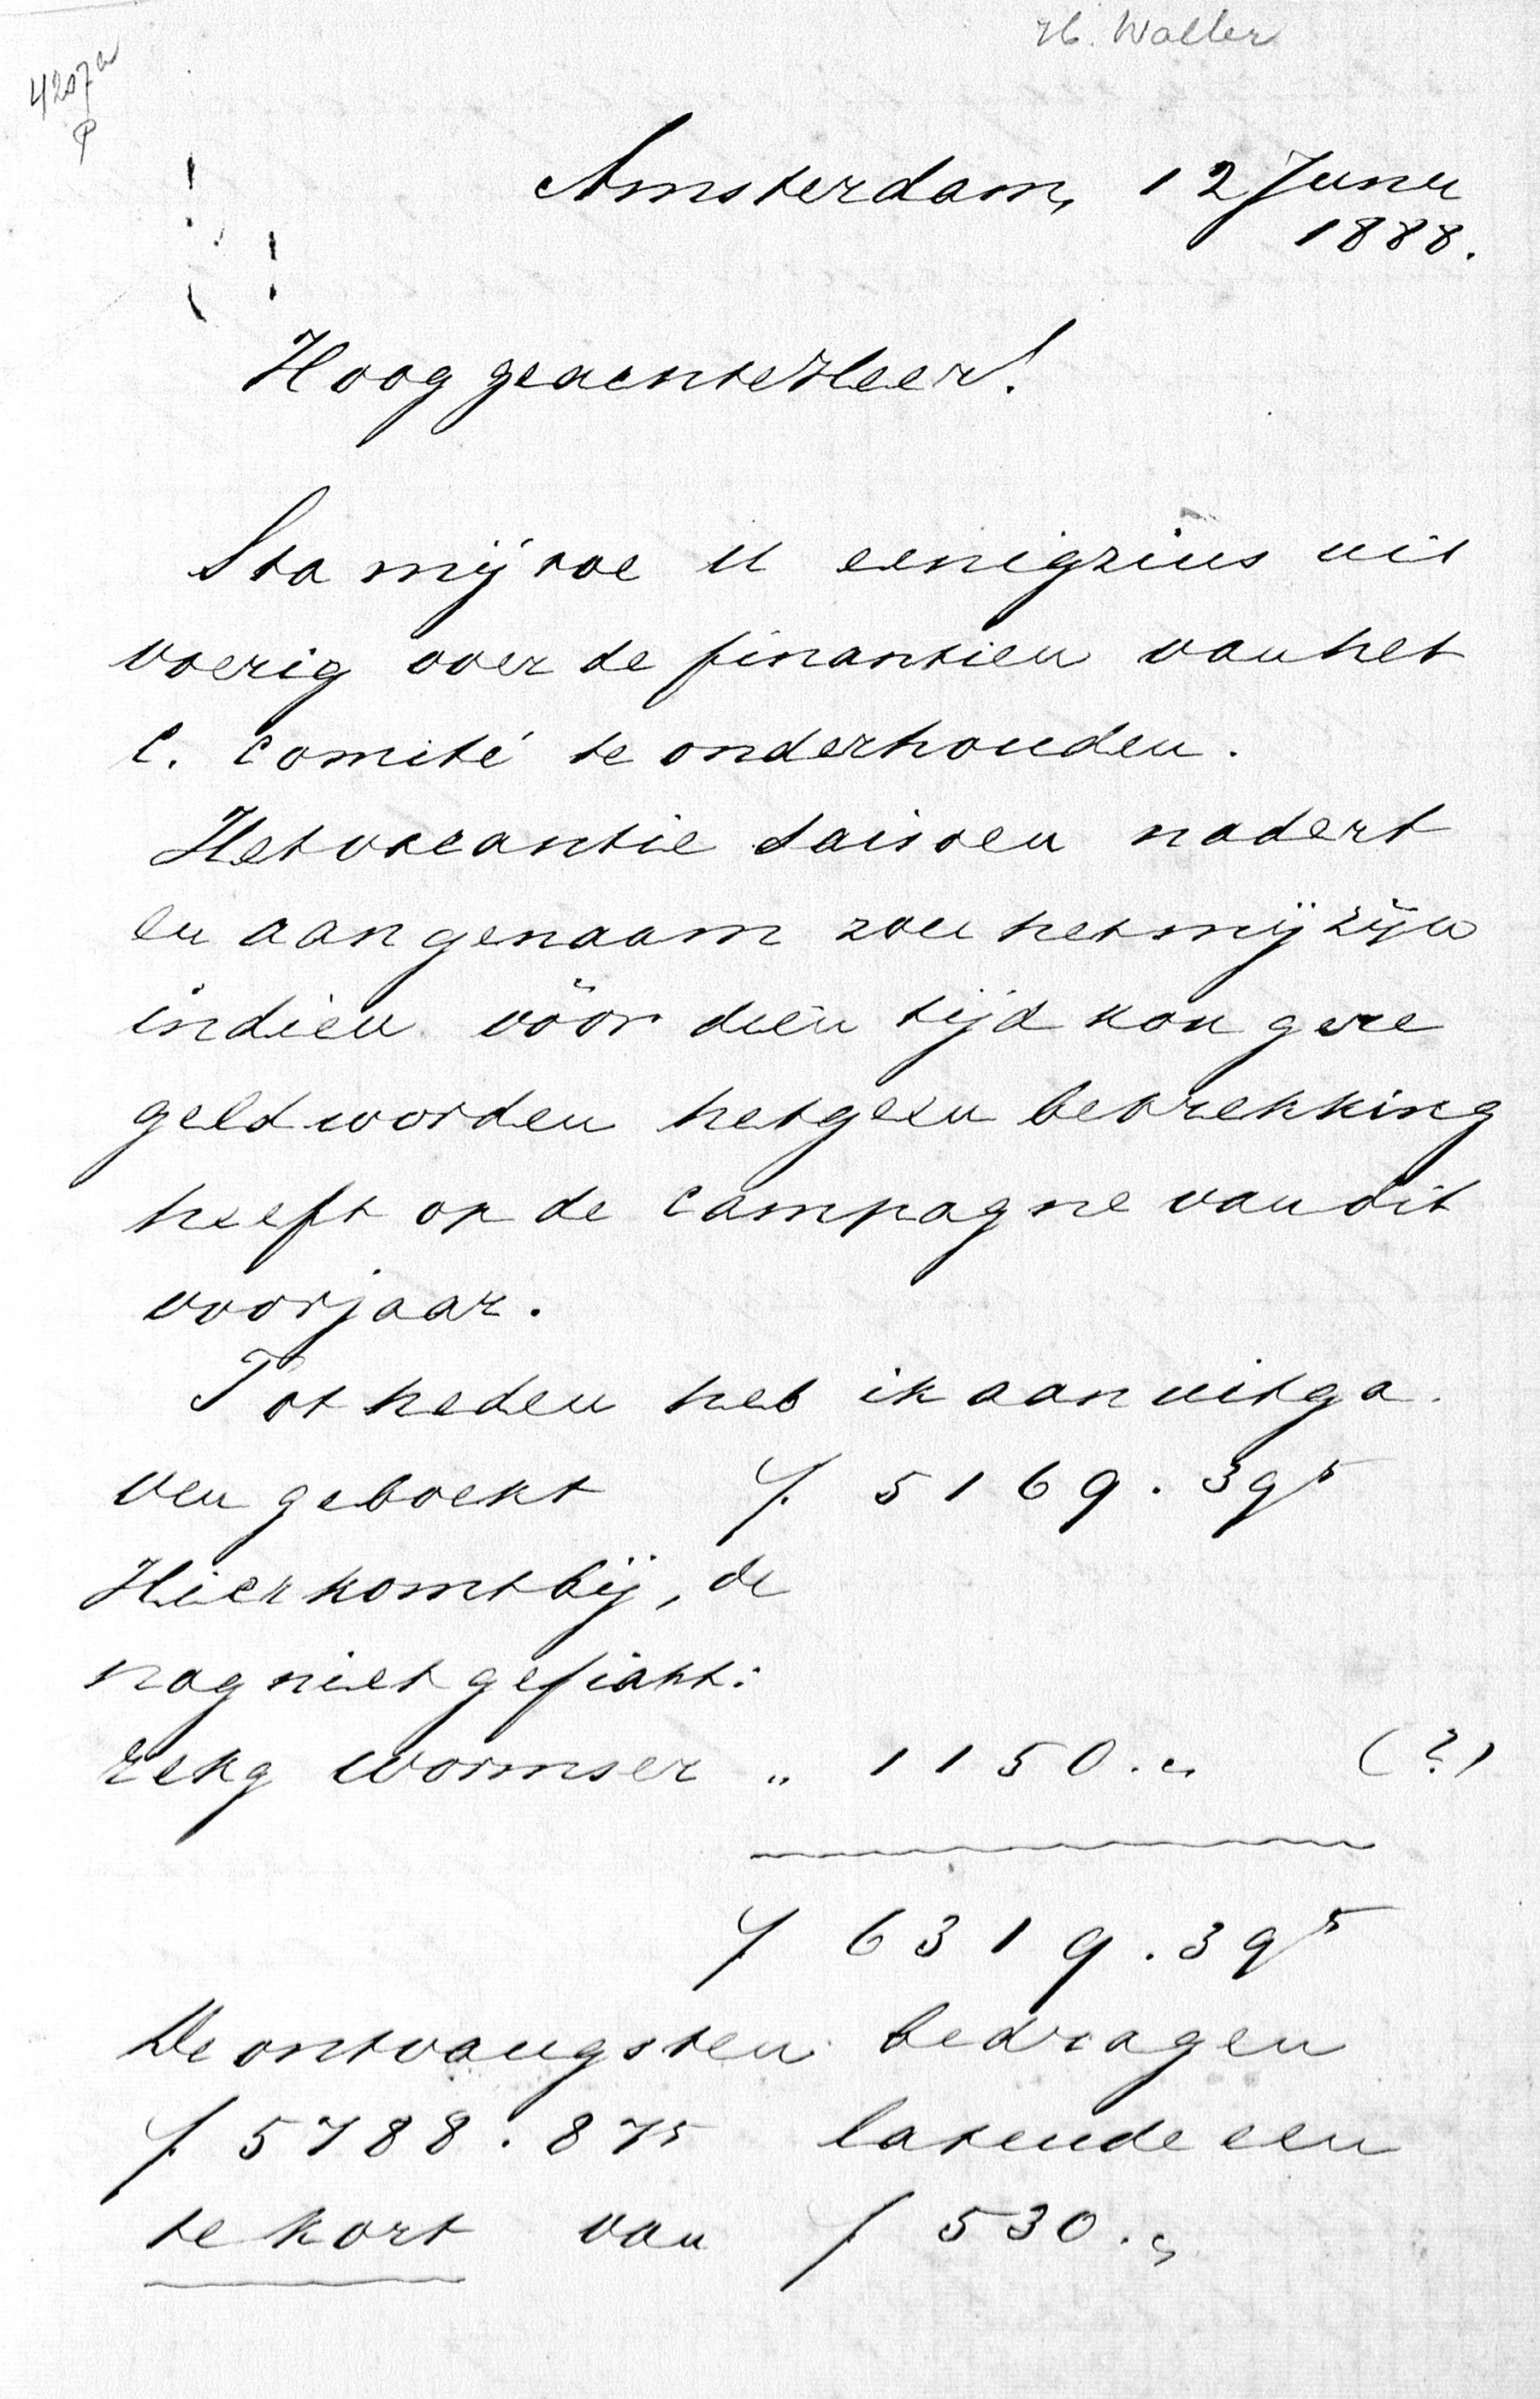 H. Waller
4207a
P
Amsterdam, 12 Juni
1888.
Hooggeachte Heer!
Sta mij toe U eenigzins uit
voerig over de finantien van het
C. Comité te onderhouden.
Het vacantie saisoen nadert
en aangenaam zou het mij zijn
indien vóór dien tijd kon gere
geld worden hetgeen betrekking
heeft op de campagne van dit
voorjaar.
Tot heden heb ik aan uitga
ven geboekt f. 5169.39⁵
Hier komt bij, de
nog niet gefiatt:
rekg Wormser „ 1150.„ (?)
f 6319.39⁵
De ontvangsten bedragen
f. 5788.875 latende een
te kort van f 530.„